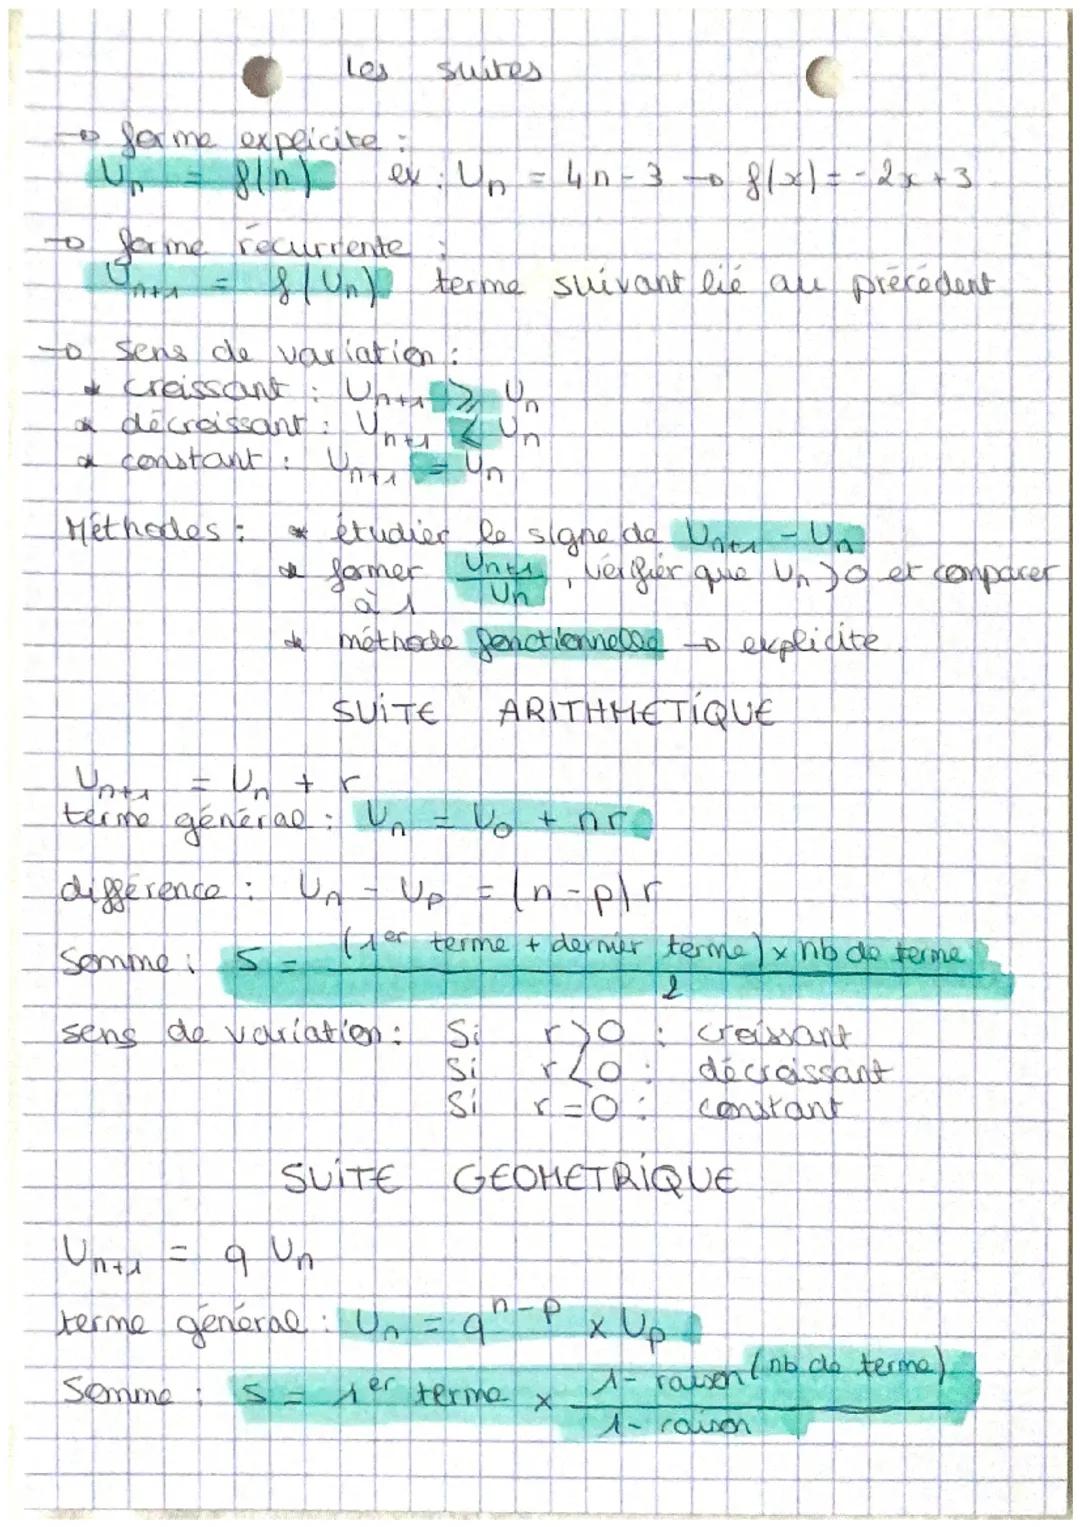 Les suites
→ forme explicite :
Un = f(n) ex : Un = 4n - 3 → f(x) = -2x + 3
→ forme récurrente :
Un+1 = f(Un) terme suivant lié au précédent
→ sens de variation :
* croissant : Un+1 ⩾ Un
* décroissant : Un+1 ⩽ Un
* constant : Un+1 = Un
Méthodes : * étudier le signe de Un+1 - Un
* former Un+1/Un, vérifier que Un > 0 et comparer
à 1
* méthode fonctionnelle → explicite.
SUITE ARITHMETIQUE
Un+1 = Un + r
terme général : Un = U0 + nr
différence : Un - Up = (n-p)r
Somme : S = (1er terme + dernier terme) x nb de terme / 2
sens de variation : Si r>0 : croissant
Si r<0 : décroissant
Si r=0 : constant
SUITE GEOMETRIQUE
Un+1 = q Un
terme général : Un = q^n-p x Up
Somme : S = 1er terme x 1 - raison^(nb de terme) / 1 - raison